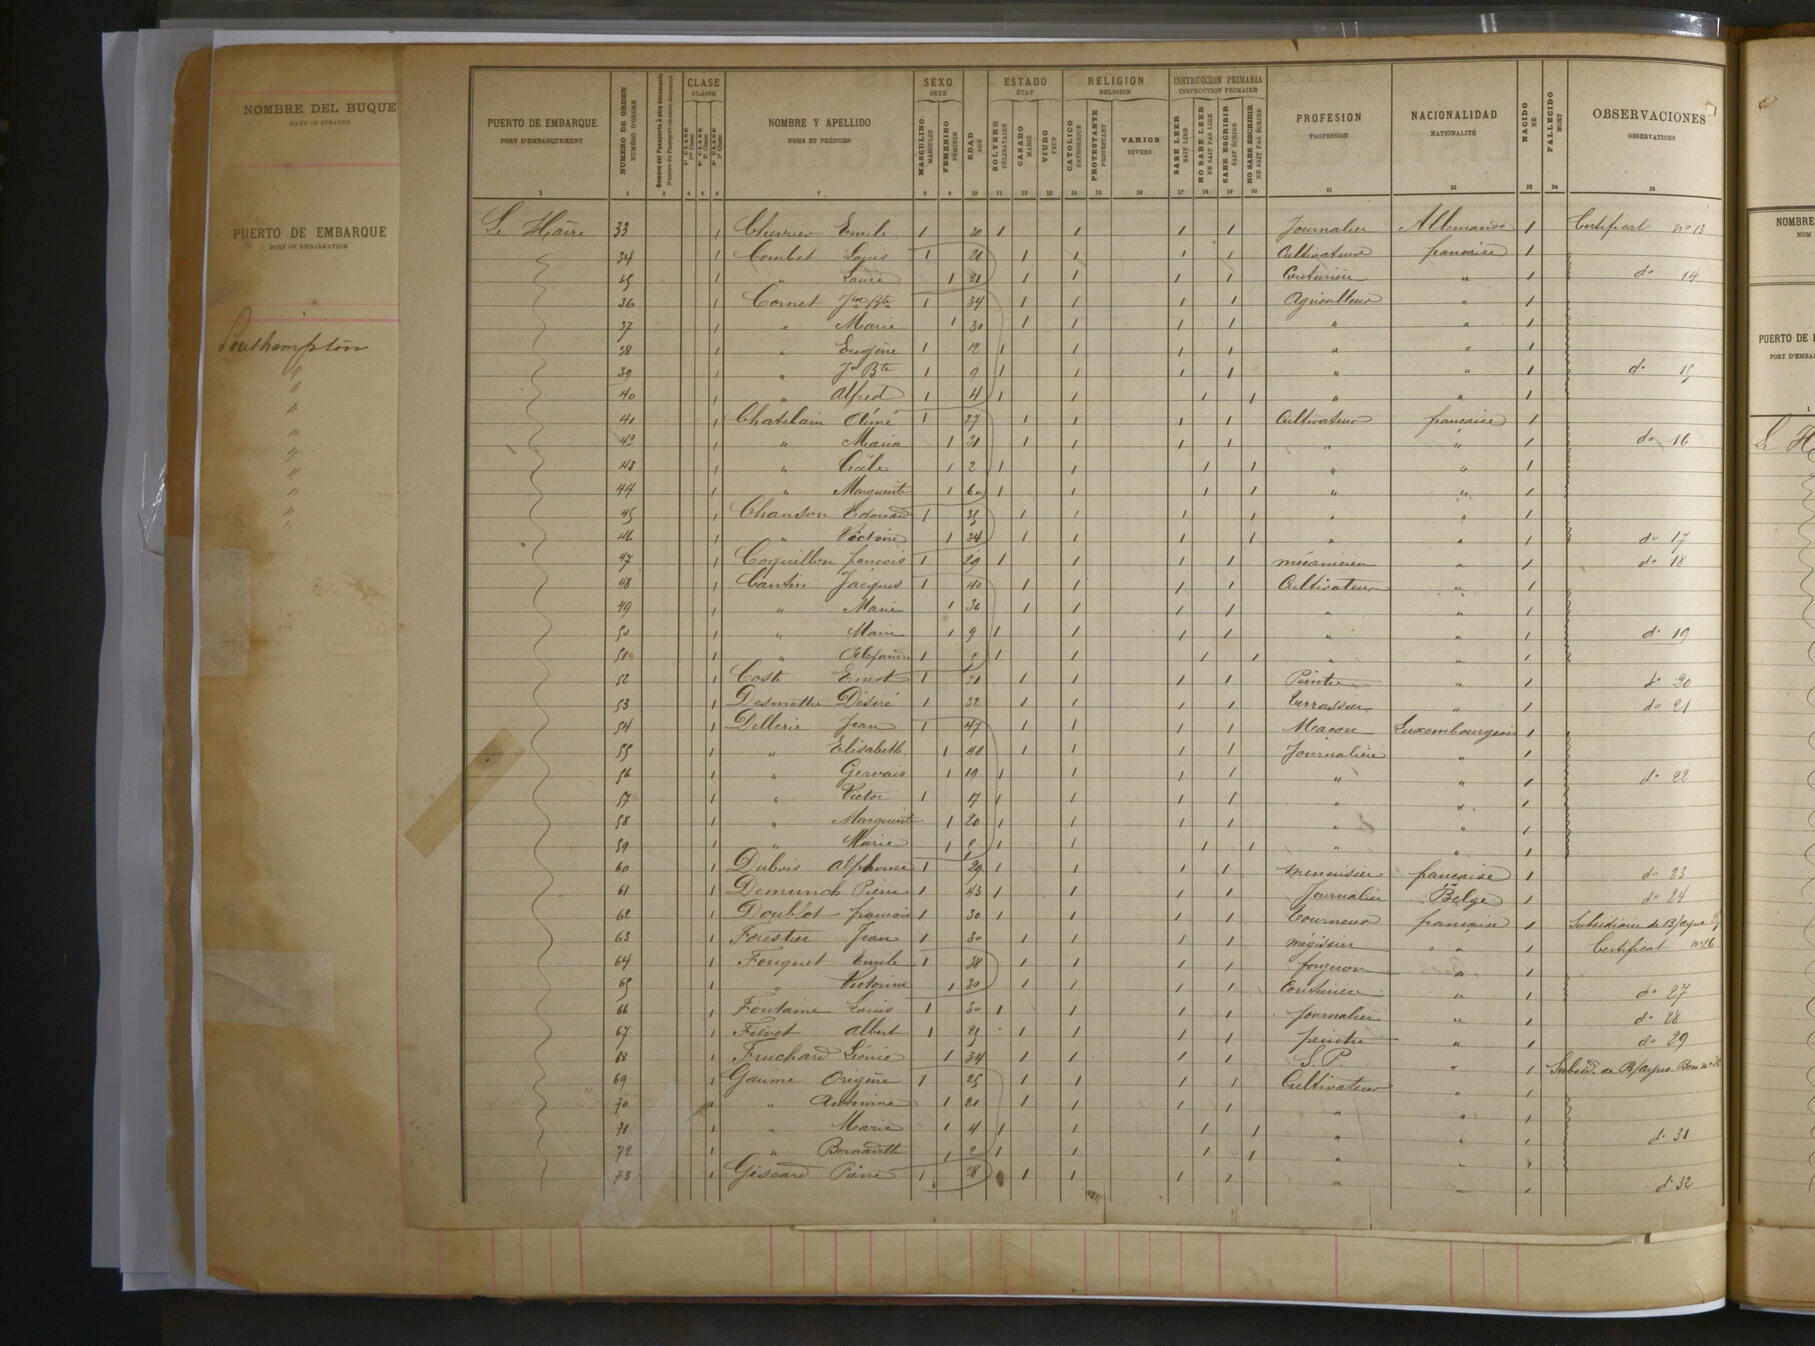 NOMBRE DEL BUQUE
NAME OF STEAMER
PUERTO DE EMBARQUE
PORT OF EMBARKATION
Southampton
"
"
"
"
"
"
"
"
"
PUERTO DE EMBARQUE
PORT D'EMBARQUEMENT
NUMERO DE ORDEN
NUMÉRO D'ORDRE
Numero del Pasaporte ú otro documento
Numéro du Passeport ou autre document
CLASE
CLASSE
1ª CLASE
1re Classe
2ª CLASE
2e Classe
3ª CLASE
3e Classe
NOMBRE Y APELLIDO
NOMS ET PRÉNOMS
SEXO
SEXE
MASCULINO
MASCULIN
FEMENINO
FÉMININ
EDAD
AGE
ESTADO
ÉTAT
SOLTERO
CÉLIBATAIRE
CASADO
MARIÉ
VIUDO
VEUF
RELIGION
RELIGION
CATOLICO
CATHOLIQUE
PROTESTANTE
PROTESTANT
VARIOS
DIVERS
INSTRUCCION PRIMARIA
INSTRUCTION PRIMAIRE
SABE LEER
SAIT LIRE
NO SABE LEER
NE SAIT PAS LIRE
SABE ESCRIBIR
SAIT ÉCRIRE
NO SABE ESCRIBIR
NE SAIT PAS ÉCRIRE
PROFESION
PROFESSION
NACIONALIDAD
NATIONALITÉ
NACIDO
NÉ
FALLECIDO
MORT
OBSERVACIONES
OBSERVATIONS
1 2 3 4 5 6 7 8 9 10 11 12 13 14 15 16 17 18 19 20 21 22 23 24 25
Le Hâvre 33 1 Chevrier Emile 1 20 1 1 1 1 Journalier Allemande 1 Certificat no 13
34 1 Combet Louis 1 26 1 1 1 1 Cultivateur française 1
35 1 " 1 21 1 1 1 1 Couturière " 1 do 14
36 1 Cornet Jn Bte 1 34 1 1 1 1 Agriculteur " 1
37 1 " Marie 1 30 1 1 1 1 " " 1
38 1 " Eugène 1 12 1 1 1 1 " " 1
39 1 " Jn Bte 1 9 1 1 1 1 " " 1 do 15
40 1 " Alfred 1 4 1 1 1 1 " " 1
41 1 Chatelain Aimé 1 27 1 1 1 1 Cultivateur française 1
42 1 " Maria 1 31 1 1 1 1 " " 1 do 16
43 1 " Cécile 1 2 1 1 1 1 " " 1
44 1 " Marguerite 1 1 1 1 1 " " 1
45 1 Chanson Edouard 1 35 1 1 1 1 " " 1
46 1 " Victoire 1 34 1 1 1 1 " " 1 do 17
47 1 Coquillon françois 1 29 1 1 1 1 mécanicien " 1 do 18
48 1 Cantin Jacques 1 40 1 1 1 1 Cultivateur " 1
49 1 " Marie 1 36 1 1 1 1 " " 1
50 1 " Marie 1 9 1 1 1 1 " " 1 do 19
51 1 " Alexandre 1 1 1 1 1 " " 1
52 1 Coste Ernest 1 31 1 1 1 1 Peintre " 1 do 20
53 1 Desmette Désiré 1 32 1 1 1 1 terrassier " 1 do 21
54 1 Dellerie Jean 1 47 1 1 1 1 Maçon Luxembourgeois 1
55 1 " Elisabeth 1 48 1 1 1 1 Journalière " 1
56 1 " Gervais 1 19 1 1 1 1 " " 1 do 22
57 1 " Victor 1 17 1 1 1 1 " " 1
58 1 " Marguerite 1 20 1 1 1 1 " " 1
59 1 " Marie 1 1 1 1 1 " " 1
60 1 Dubois Alphonse 1 29 1 1 1 1 menuisier française 1 do 23
61 1 Demunch Pierre 1 43 1 1 1 1 Journalier Belge 1 do 24
62 1 Doublot françois 1 30 1 1 1 1 tourneur française 1 Subsidiaire de B/ayres
63 1 Forestier Jean 1 30 1 1 1 1 mégissier " 1 Certificat no 26
64 1 Fouquet Emile 1 38 1 1 1 1 forgeron " 1
65 1 " Victorine 1 30 1 1 1 1 Couturière " 1 do 27
66 1 Fontaine Louis 1 30 1 1 1 1 Journalier " 1 do 28
67 1 Fiévet Albert 1 25 1 1 1 1 peintre " 1 do 29
68 1 Fruchard Léonie 1 34 1 1 1 1 S. P. " 1 Subsid. de B/Ayres. Bon no
69 1 Gaume Origène 1 25 1 1 1 1 Cultivateur " 1
70 1 " Antoinine 1 21 1 1 1 1 " " 1
71 1 " Marie 1 4 1 1 1 1 " " 1 do 31
72 1 " Bernadette 1 2 1 1 1 1 " " 1
73 1 Giscard Pierre 1 28 1 1 1 1 " " 1 do 32
NOMBRE
NOM
PUERTO DE
PORT D'EMBA
1
Le H